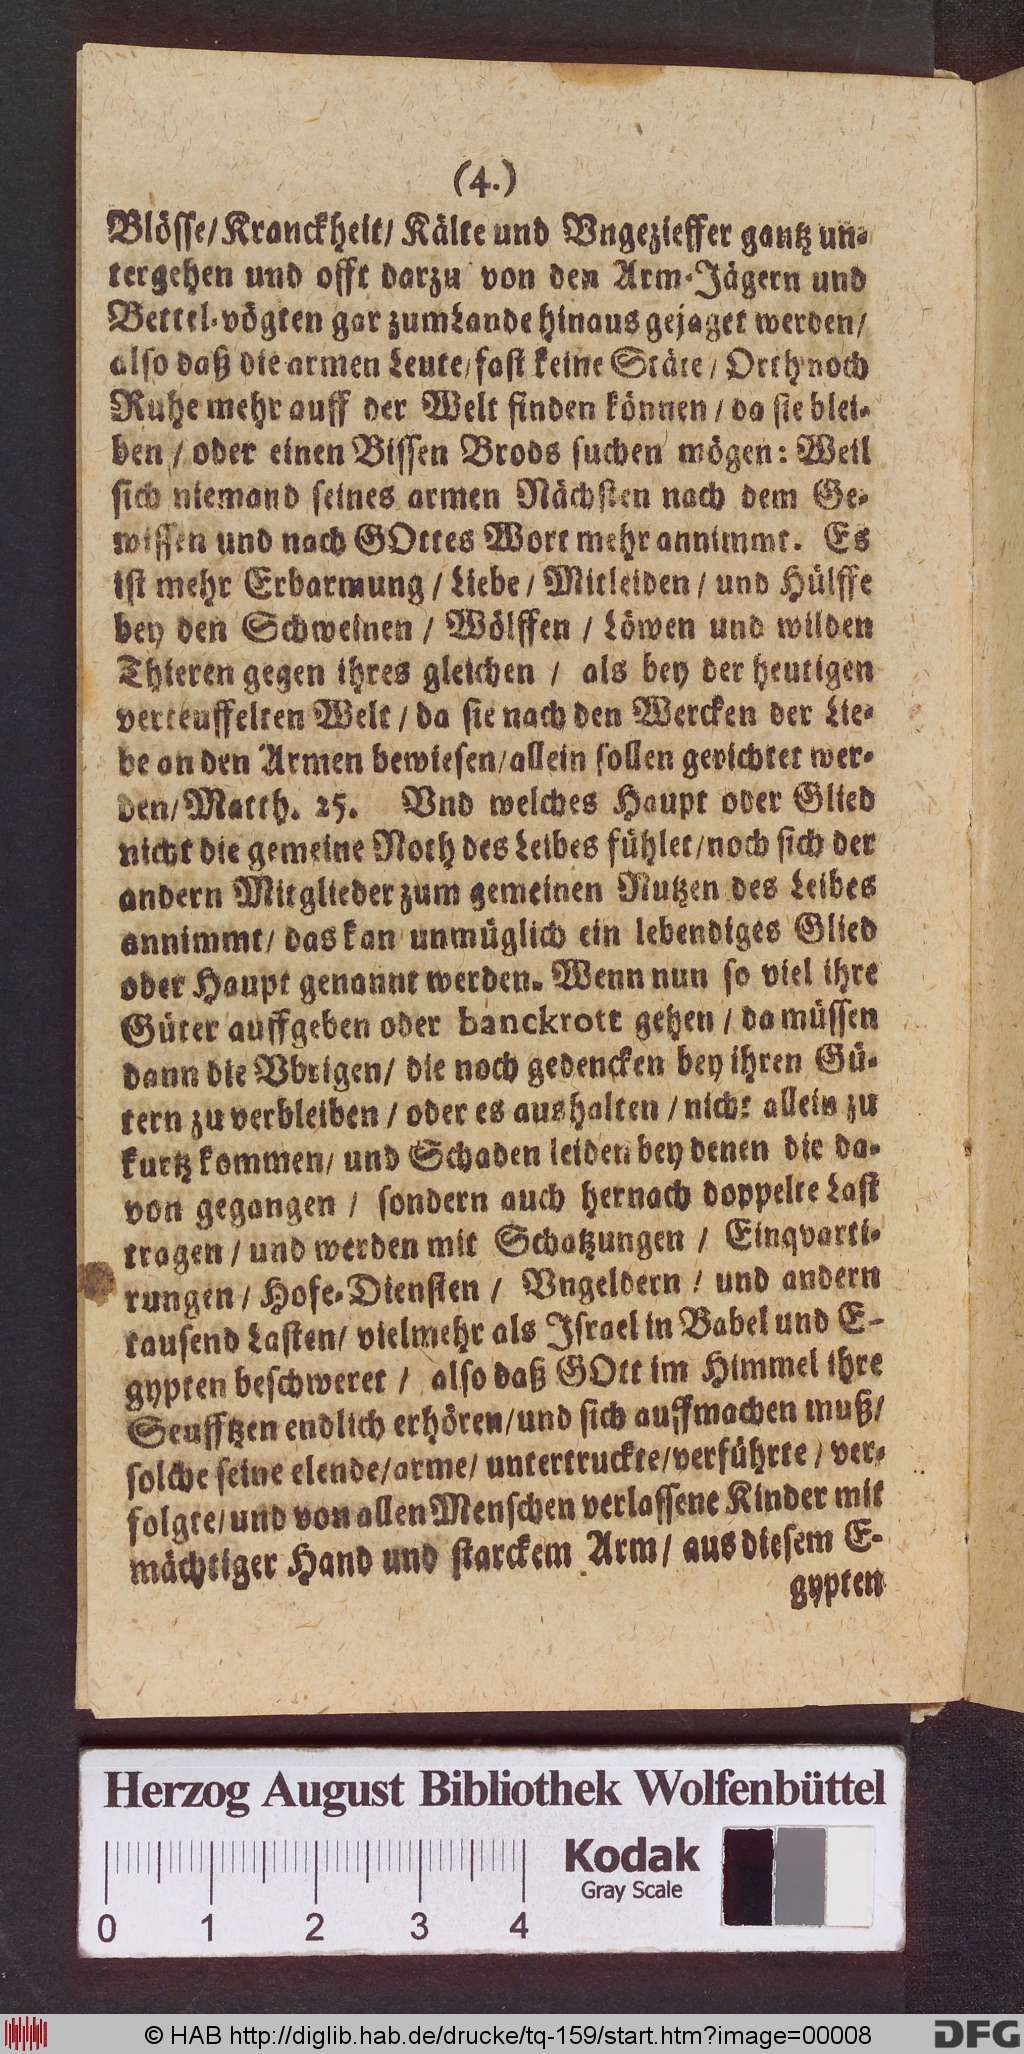 (4.)
Blösse/ Kranckheit/ Kälte und Vngezieffer gantz un-
tergehen und offt darzu von den Arm-Jägern und
Bettel-vögten gar zum Lande hinaus gejaget werden/
also daß die armen Leute/ fast keine Stäte / Orth noch
Ruhe mehr auff der Welt finden können / da sie blei-
ben / oder einen Bissen Brods suchen mögen: Weil
sich niemand seines armen Nächsten nach dem Ge-
wissen und nach GOttes Wort mehr annimmt. Es
ist mehr Erbarmung / Liebe / Mitleiden / und Hülffe
bey den Schweinen / Wölffen / Löwen und wilden
Thieren gegen ihres gleichen / als bey der heutigen
verteuffelten Welt / da sie nach den Wercken der Lie-
be an den Armen bewiesen/ allein sollen gerichtet wer-
den/ Matth. 25. Vnd welches Haupt oder Glied
nicht die gemeine Noth des Leibes fühlet/ noch sich der
andern Mitglieder zum gemeinen Nutzen des Leibes
annimmt/ das kan unmüglich ein lebendiges Glied
oder Haupt genannt werden. Wenn nun so viel ihre
Güter auffgeben oder banckrott gehen / da müssen
dann die Vbrigen/ die noch gedencken bey ihren Gü-
tern zu verbleiben / oder es aushalten / nicht allein zu
kurtz kommen/ und Schaden leiden bey denen die da-
von gegangen / sondern auch hernach doppelte Last
tragen / und werden mit Schatzungen / Einqvarti-
rungen / Hofe-Diensten / Vngeldern / und andern
tausend Lasten/ vielmehr als Israel in Babel und E-
gypten beschweret / also daß GOtt im Himmel ihre
Seufftzen endlich erhören/ und sich auffmachen muß/
solche seine elende/ arme/ untertruckte/ verführte / ver-
folgte/ und von allen Menschen verlassene Kinder mit
mächtiger Hand und starckem Arm/ aus diesem E-
gypten
Herzog August Bibliothek Wolfenbüttel
Kodak
Gray Scale
0 1 2 3 4
© HAB http://diglib.hab.de/drucke/tq-159/start.htm?image=00008
DFG